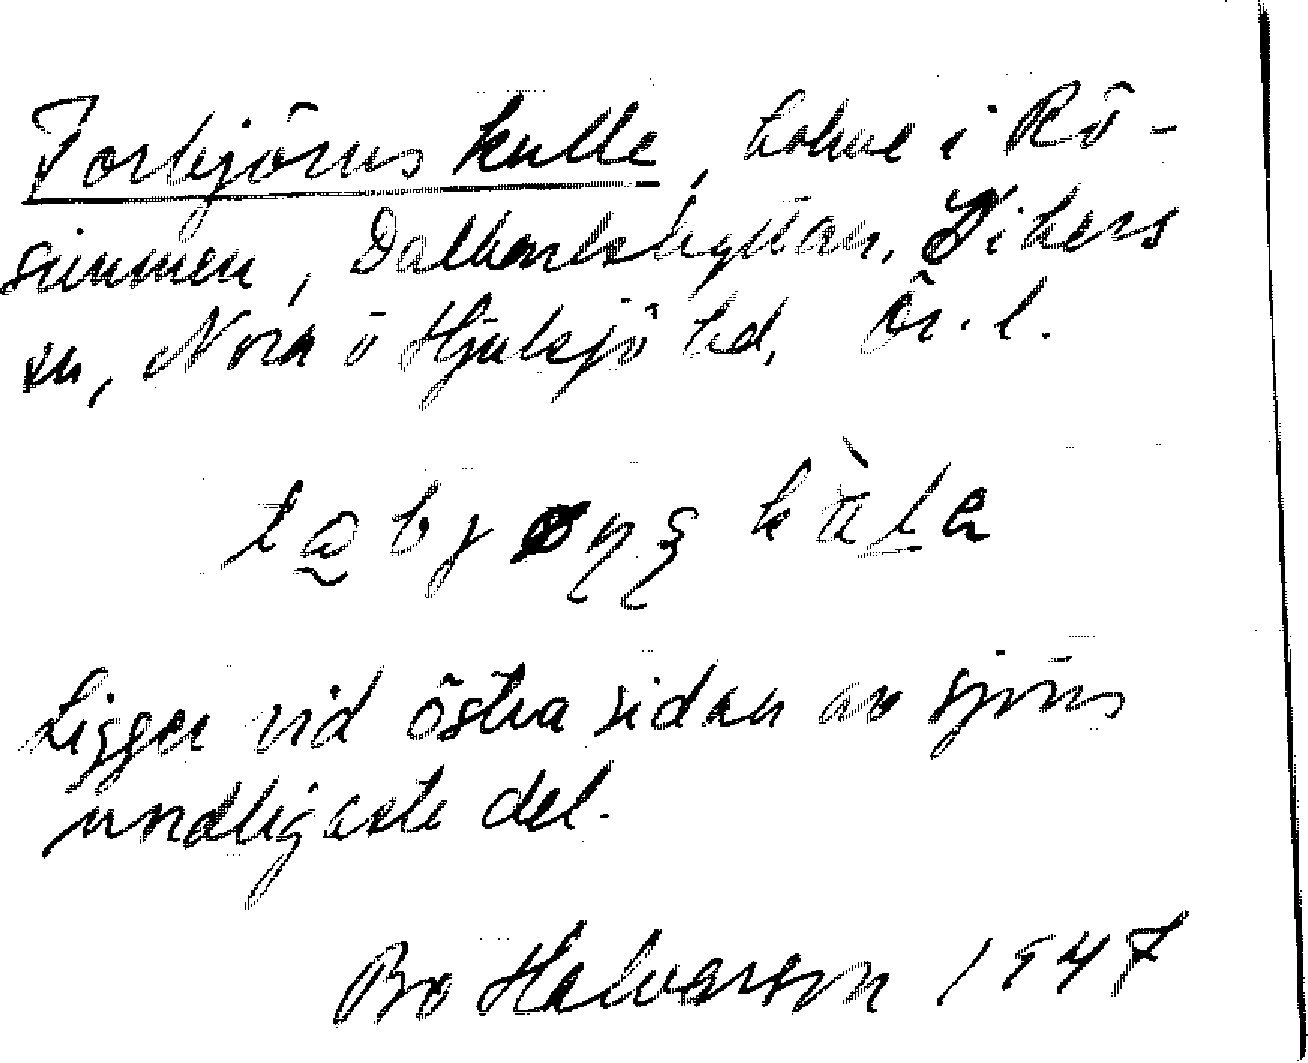 Torbjörns kulle, holme i Rö-
simmen, Dalkarlshyttan, Vikers
sn, Nora o Hjulsjö hd, Ör. l.
Ligger vid östra sidan av sjöns
nordligaste del.
Bo Halvarson 1947